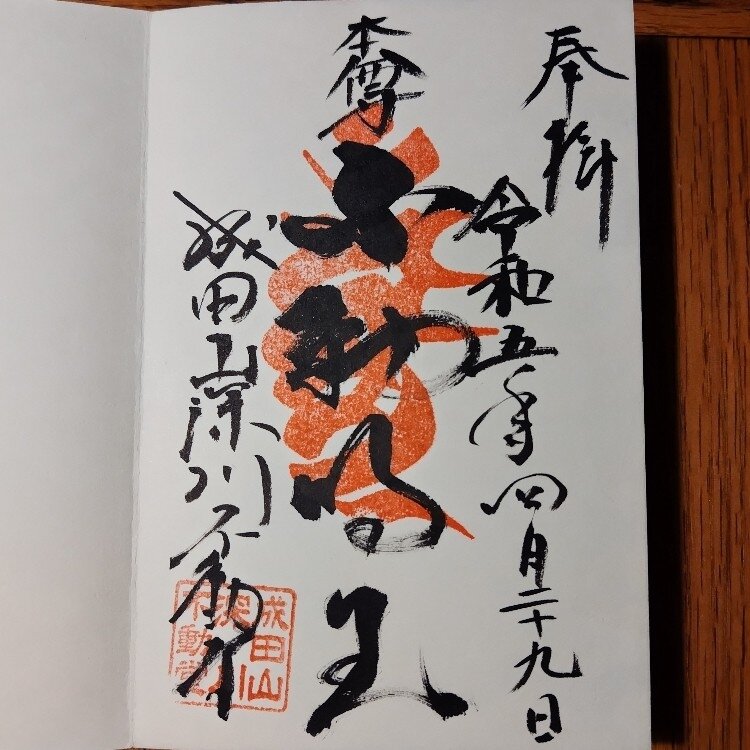 奉拝
令和五年四月二十九日
本尊
不動明王
成田山深川不動堂
成田山
深川
不動堂